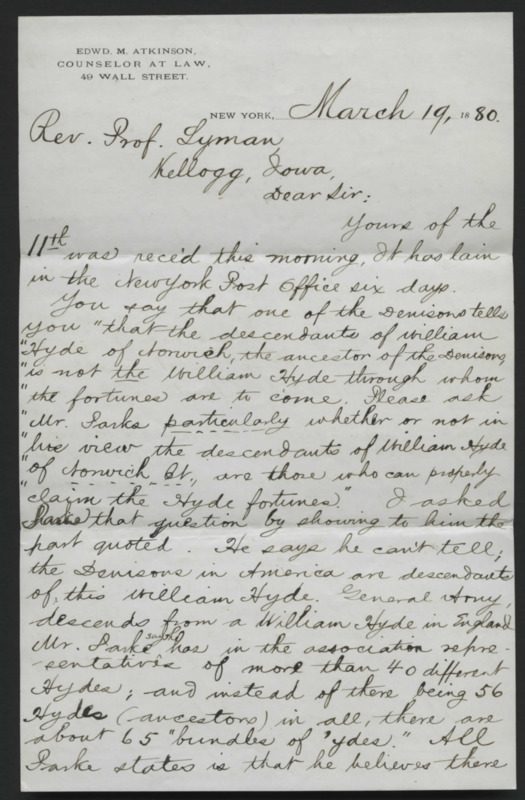 EDWD. M. ATKINSON,
COUNSELOR AT LAW,
49 WALL STREET.
NEW YORK, March 19, 1880.
Rev. Prof. Lyman,
Kellogg, Iowa,
Dear Sir:
Yours of the
11th was rec'd this morning, It has lain
in the New York Post Office six days.
You say that one of the Denisons tells
you "that the descendants of William
"Hyde of Norwich, the ancestor of the Denisons,
"is not the William Hyde through whom
"the fortunes are to come. Please ask
"Mr. Parks particularly whether or not in
"his view the descendants of William Hyde
"of Norwich Ct., are those who can properly
"claim the Hyde fortunes." I asked
Parke that question by showing to him the
part quoted. He says he can't tell;
the Denisons in America are descendants
of, this William Hyde. General
descends from a William Hyde in England
Mr. Parke says he has in the association repre-
sentatives of more than 40 different
Hydes; and instead of there being 56
Hydes (ancestors) in all, there are
about 65 "bundles of 'ydes." All
Parke states is that he believes there